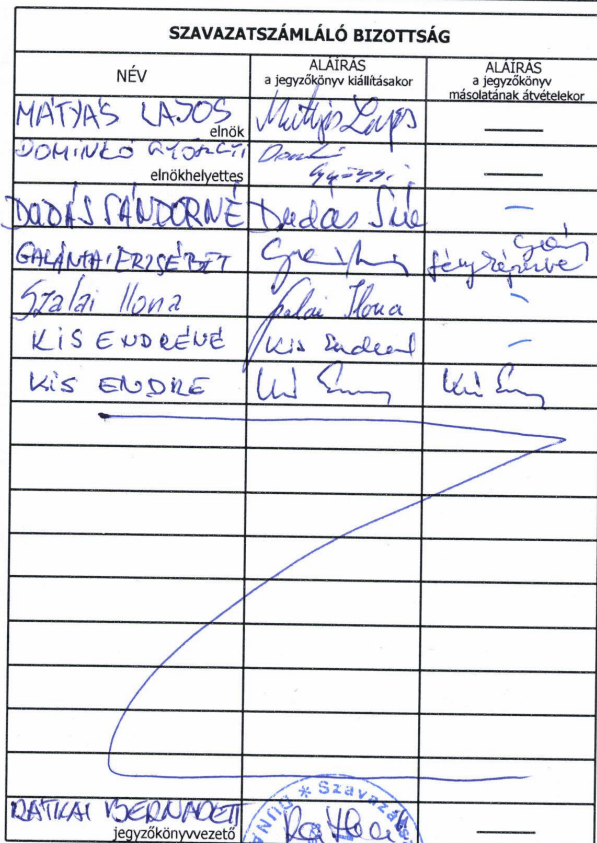 SZAVAZATSZÁMLÁLÓ BIZOTTSÁG
NÉV
ALÁÍRÁS
a jegyzőkönyv kiállításakor
ALÁÍRÁS
a jegyzőkönyv
másolatának átvételekor
MÁTYÁS LAJOS
elnök
Mátyás Lajos
DOMINKÓ GYÖRGYI
elnökhelyettes
DUDÁS SÁNDORNÉ
Dudás
GALÁNTAI ERZSÉBET
fényképezve
Szalai Ilona
Szalai Ilona
KIS ENDRÉNÉ
Kis Endréné
KIS ENDRE
RATKAI BERNADETT
jegyzőkönyvvezető
Ratkai